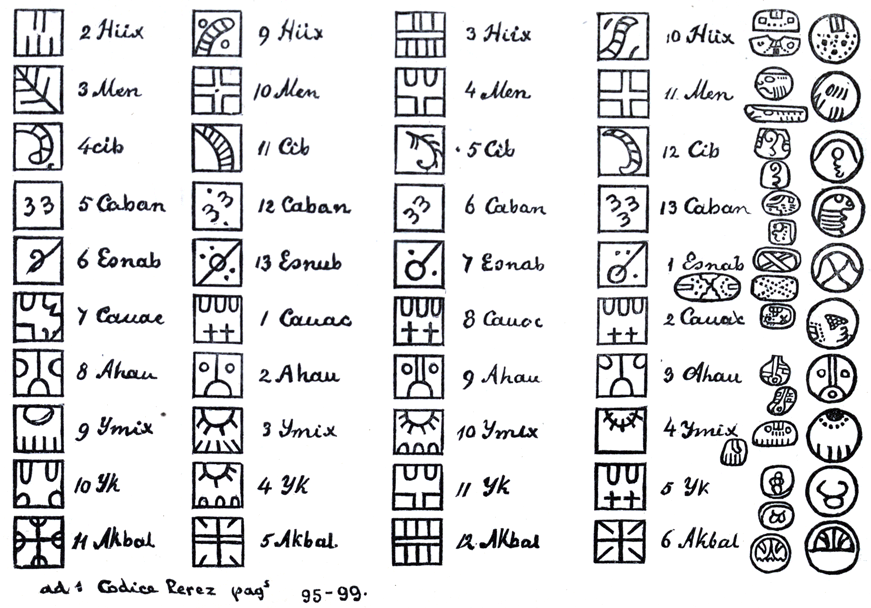 2 Hiix 9 Hiix 3 Hiix 10 Hiix
3 Men 10 Men 4 Men 11 Men
4 cib 11 Cib 5 Cib 12 Cib
5 Caban 12 Caban 6 Caban 13 Caban
6 Esnab 13 Esnub 7 Esnab 1 Esnab
7 Cauac 1 Cauac 8 Cauoc 2 Cauac
8 Ahau 2 Ahau 9 Ahau 3 Ahau
9 Ymix 3 Ymix 10 Ymix 4 Ymix
10 Yk 4 YK 11 Yk 5 YK
11 Akbal 5 Akbal. 12 Akbal 6 Akbal
Codice Perez pags 95-99.